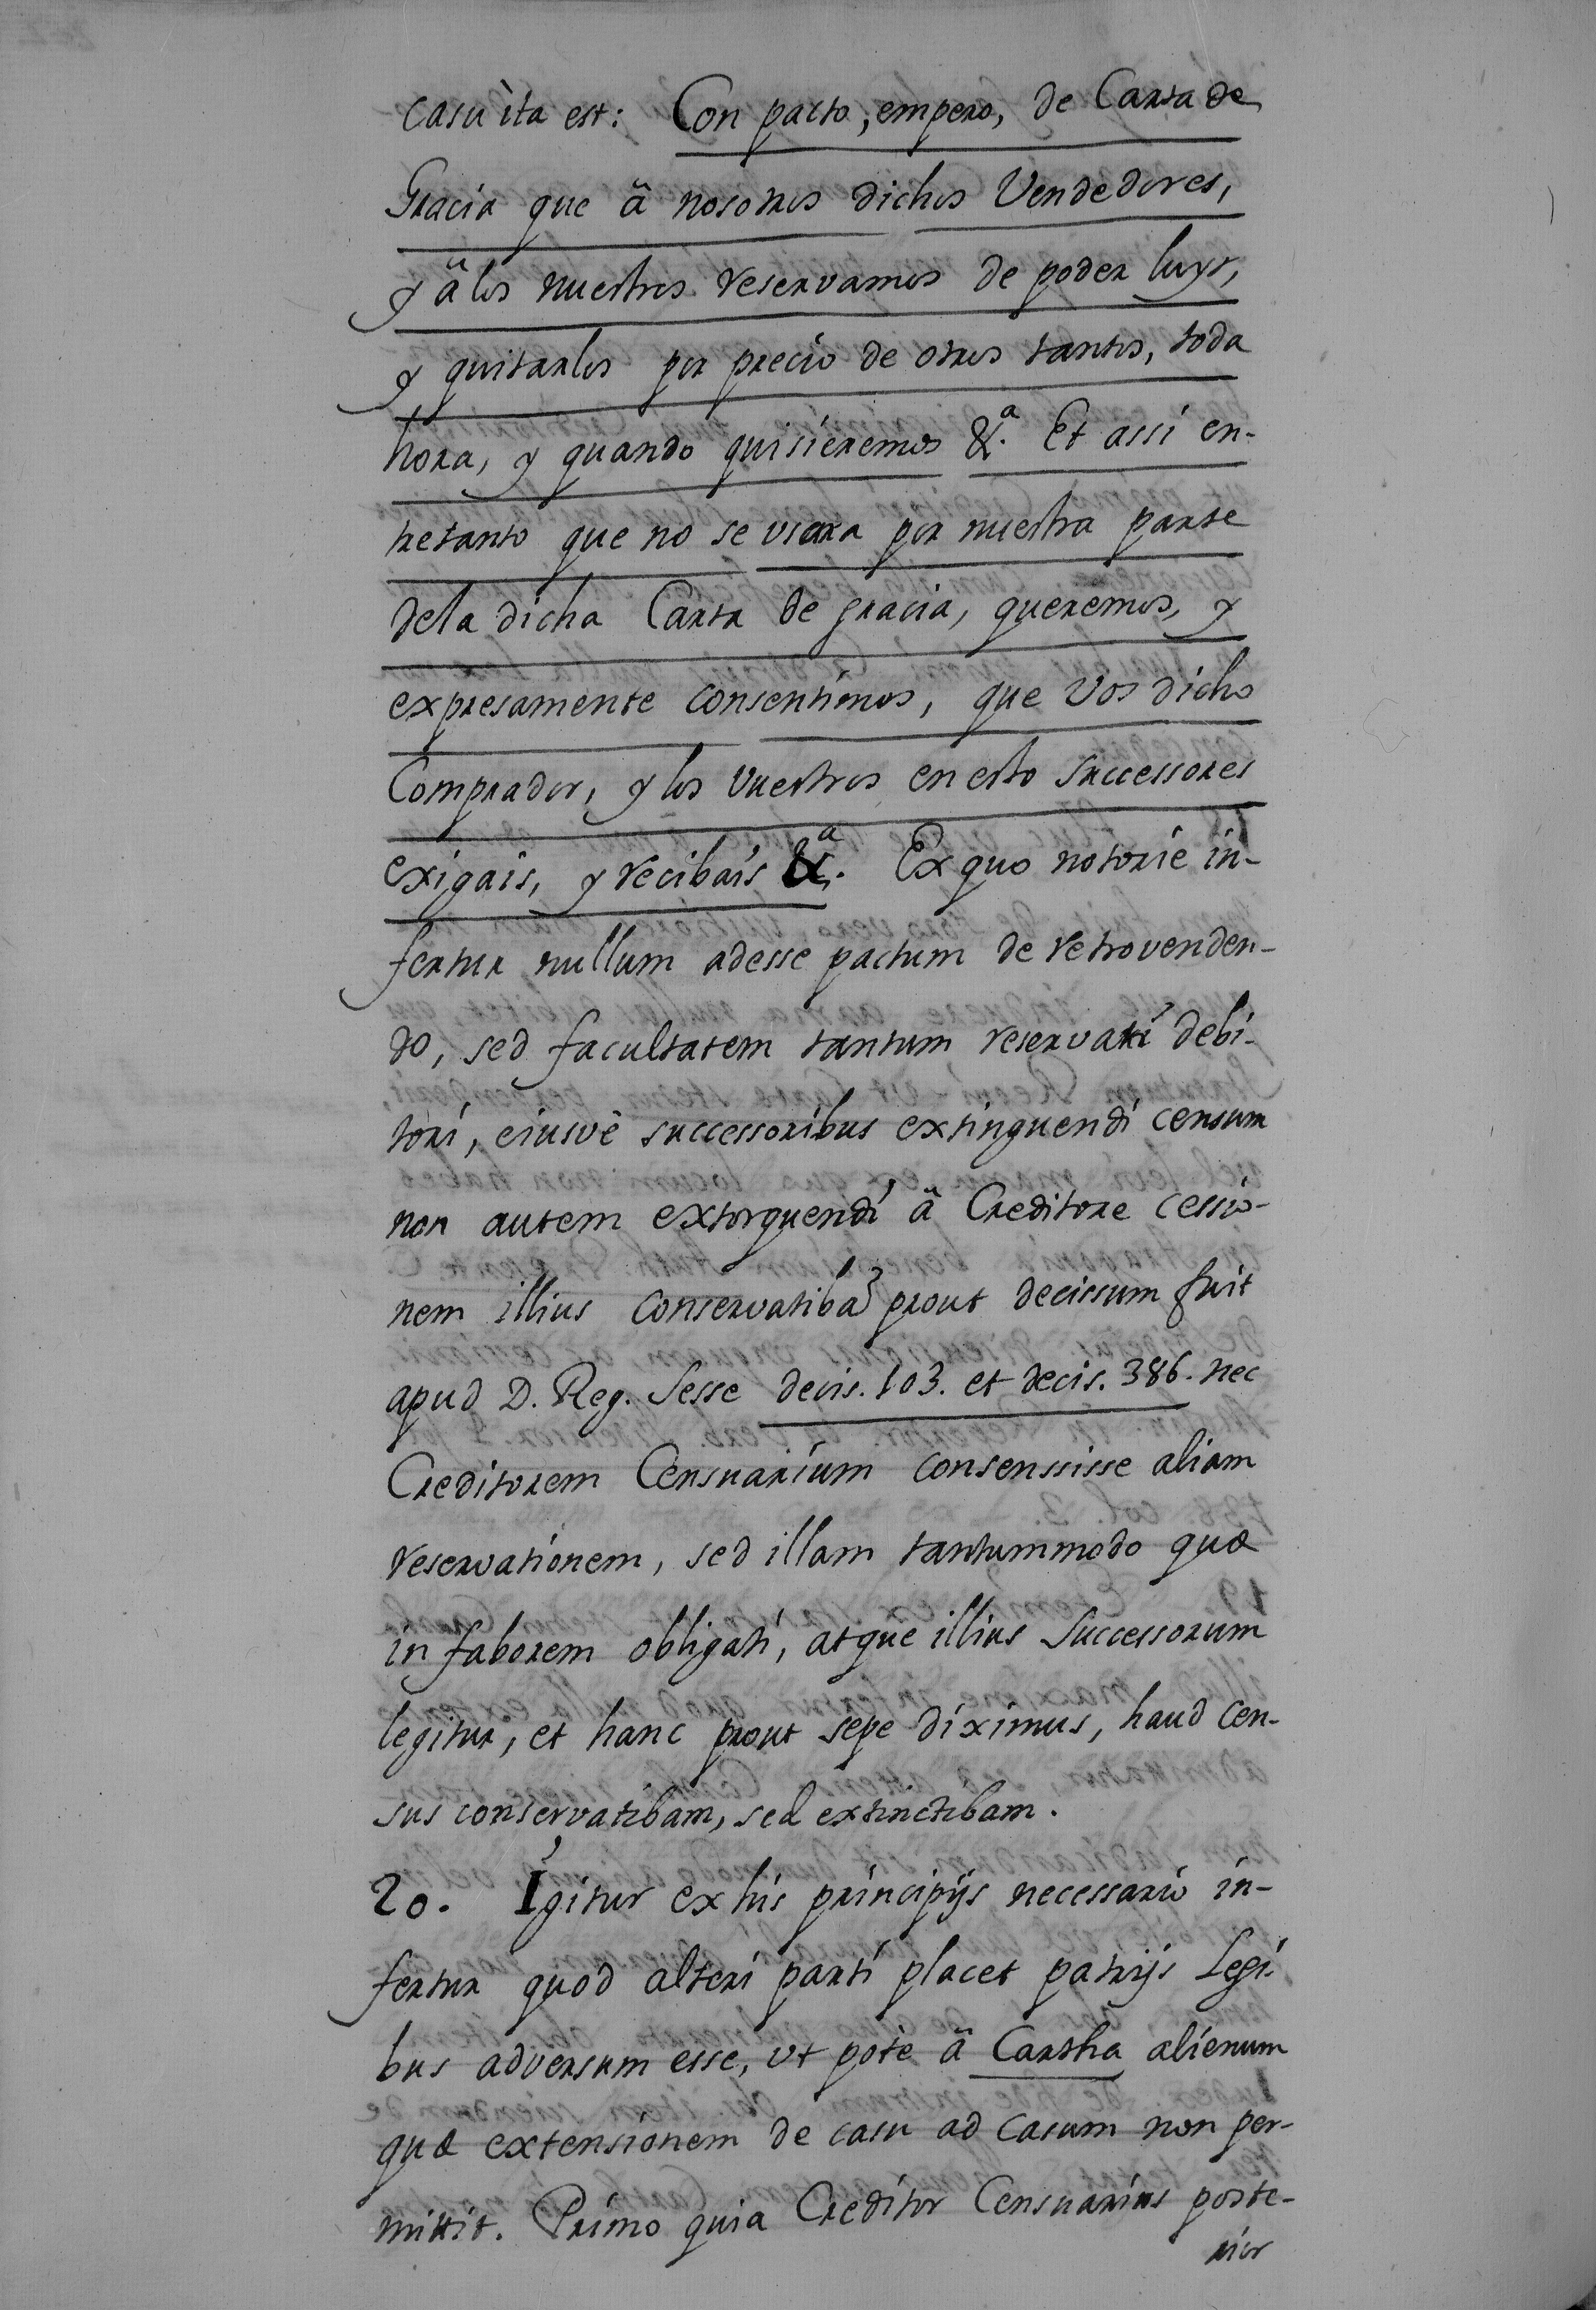 casu ita est: Con pacto, empero, de Carta de
Gracia que â nosotros dichos Vendedores,
y â los nuestros reservamos de poder luyr,
y quitarlos por precio de otros tantos, toda
hora, y quando quisieremos &.ª Et assi en-
tretanto que no se usara por nuestra parte
dela dicha Carta de gracia, queremos, y
expresamente consentimos, que Vos dicho
Comprador, y los Vuestros en esto successores
exigais, y recibais &.ª Ex quo notorie in-
fertur nullum adesse pactum de retrovenden-
do, sed facultatem tantum reservati debi-
tori, eiusvè successoribus extinguendi censum
non autem extorquendi â Creditore cessio-
nem illius conservatiba prout decissum fuit
apud D. Reg. Sesse decis. 103. et decis. 386. nec
Creditorem Censuarium consenssisse aliam
reservationem, sed illam tantummodo quæ
in faborem obligati, atque illius Successorum
legitur, et hanc prout sepe diximus, haud Cen-
sus conservatibam, sed extinctibam.
20. Igitur ex his principijs necessario in-
fertur quod alteri parti placet patrijs Legi-
bus adversum esse, ut potè â Cartha alienum
quæ extensionem de casu ad casum non per-
mittit. Primo quia Creditor Censuarius poste-
rior